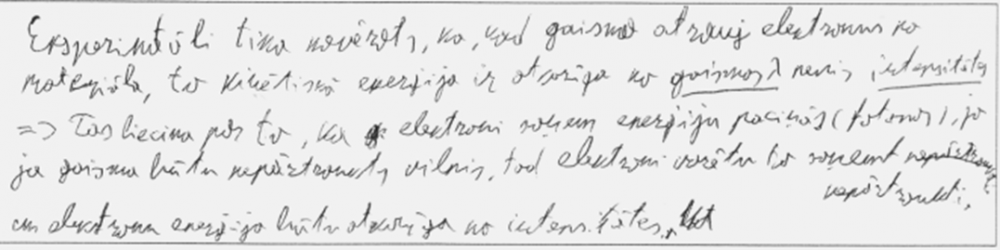 Eksperimentāli tika novērots, ka, kad gaisma atrauj elektronus no
materiāla, to kinētiskā enerģija ir atkarīga no gaismas λ nevis intensitātes
=> Tas liecina par to, ka elektroni saņem enerģiju paciņās (fotonos), jo
ja gaisma būtu nepārtraukts vilnis, tad elektroni varētu to saņemt
nepārtraukti,
un elektronu enerģija būtu atkarīga no intensitātes.